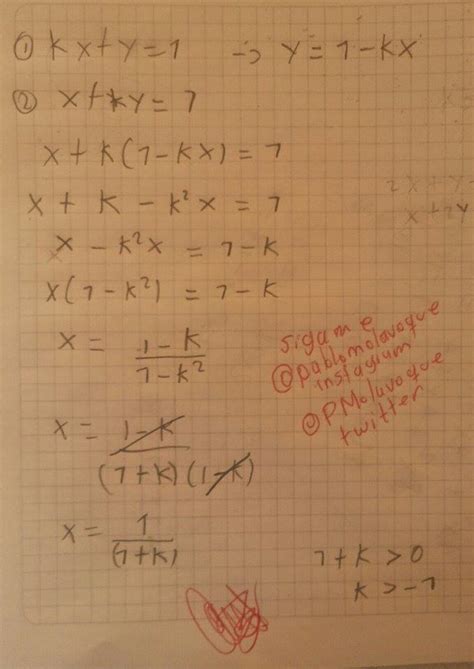 ① kx+y=1 → y=1-kx
② x+ky=1
x+k(1-kx)=1
x+k-k²x=1
x-k²x=1-k
x(1-k²)=1-k
x=\frac{1-k}{1-k²}
x=\frac{1-k}{(1+k)(1-k)}
x=\frac{1}{(1+k)}
1+k>0
k>-1
sigam e
@pablomolavoque
instagram
@PMolavoque
twitter